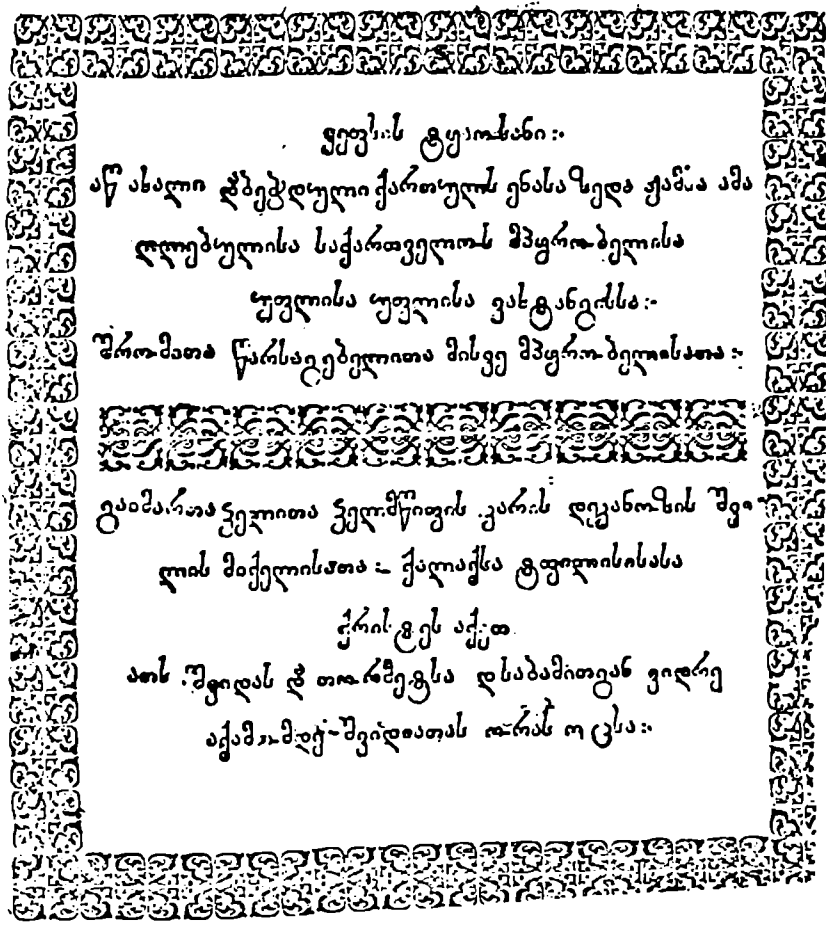 ვეფხის ტყაოსანი ჻
აწ ახალი დაბეჭდული ქართულს ენასა ზედა ჟამსა ამა
ღლებულისა საქართველოს მპყრობელისა
უფლისა უფლისა ვახტანგისსა ჻
შრომათა წარსაგებელითა მისვე მპყრობელისათა ჻
გაიმართა ჴელითა ჴელმწიფის კარის დეკანოზის შვი
ლის მიქელისათა ქალაქსა ტფილისისასა
ქრისტეს აქეთ
ათს შვიდას და თორმეტსა დასაბამითგან ვიდრე
აქამომდე შვიდიათას ორას ოცსა ჻